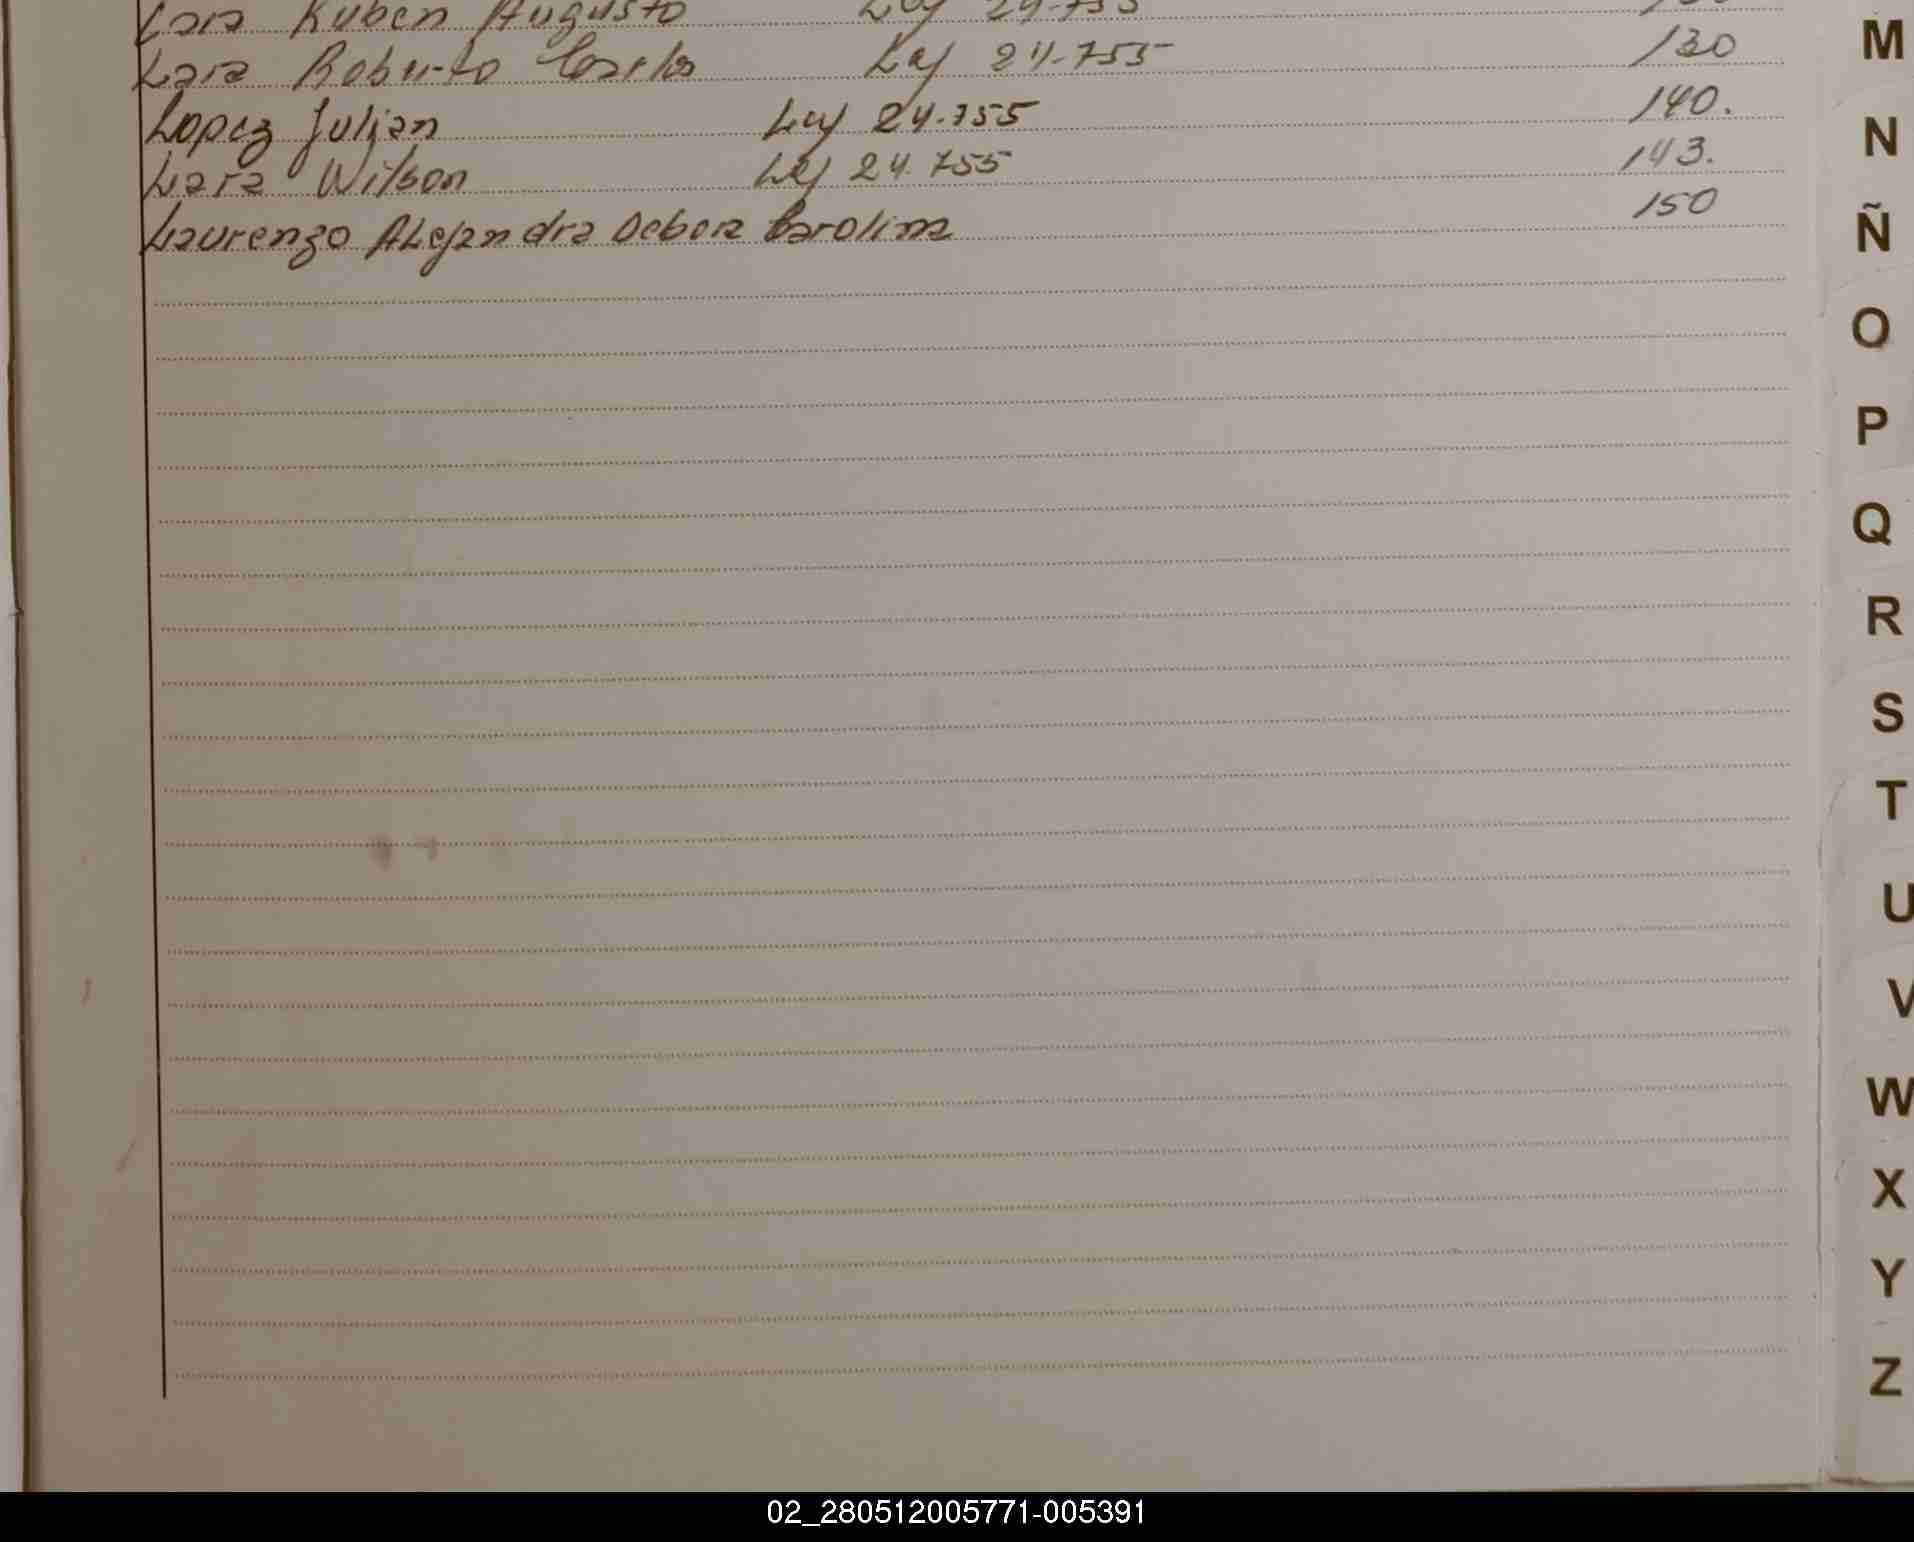 Lara Ruben Augusto Ley 24-755
Lara Roberto Carlos Ley 24-755 130
Lopez Julian Ley 24.755 140.
Lara Wilson Ley 24.755 143.
Laurenzo Alejandra Debora Carolina 150
M
N
Ñ
O
P
Q
R
S
T
U
V
W
X
Y
Z
02_280512005771-005391